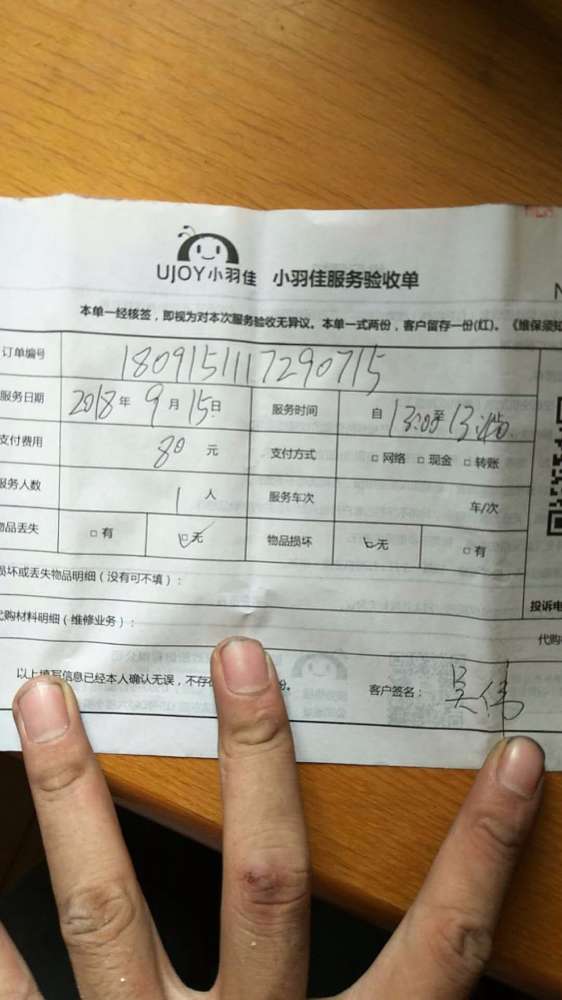 UJOY小羽佳 小羽佳服务验收单
本单一经核签，即视为对本次服务验收无异议。本单一式两份，客户留存一份(红)。《维保须知
订单编号 1809151117290715
服务日期 2018年 9月 15日 服务时间 自 13:00至 13:
支付费用 80 元 支付方式 □ 网络 □ 现金 □ 转账
服务人数 1 人 服务车次 车/次
物品丢失 □ 有 ☑无 物品损坏 ☑无 □ 有
损坏或丢失物品明细（没有可不填）： 投诉电
代购材料明细（维修业务）： 代购
以上填写信息已经本人确认无误，不存 份。 客户签名： 吴伟